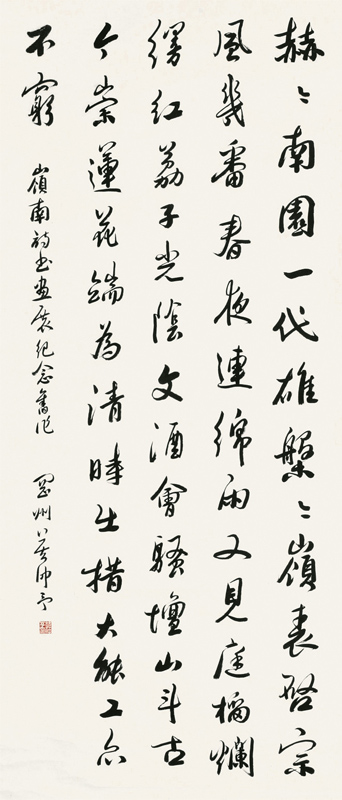 赫〻南園一代雄盤〻嶺表啓宗
風幾番春夜連綿雨又見庭榴爛
縵紅荔子光陰文酒會騷壇山斗古
今崇蓮花端為清時出措大能工亦
不窮 嶺南詩書畫展紀念舊作 岡州莫仲予